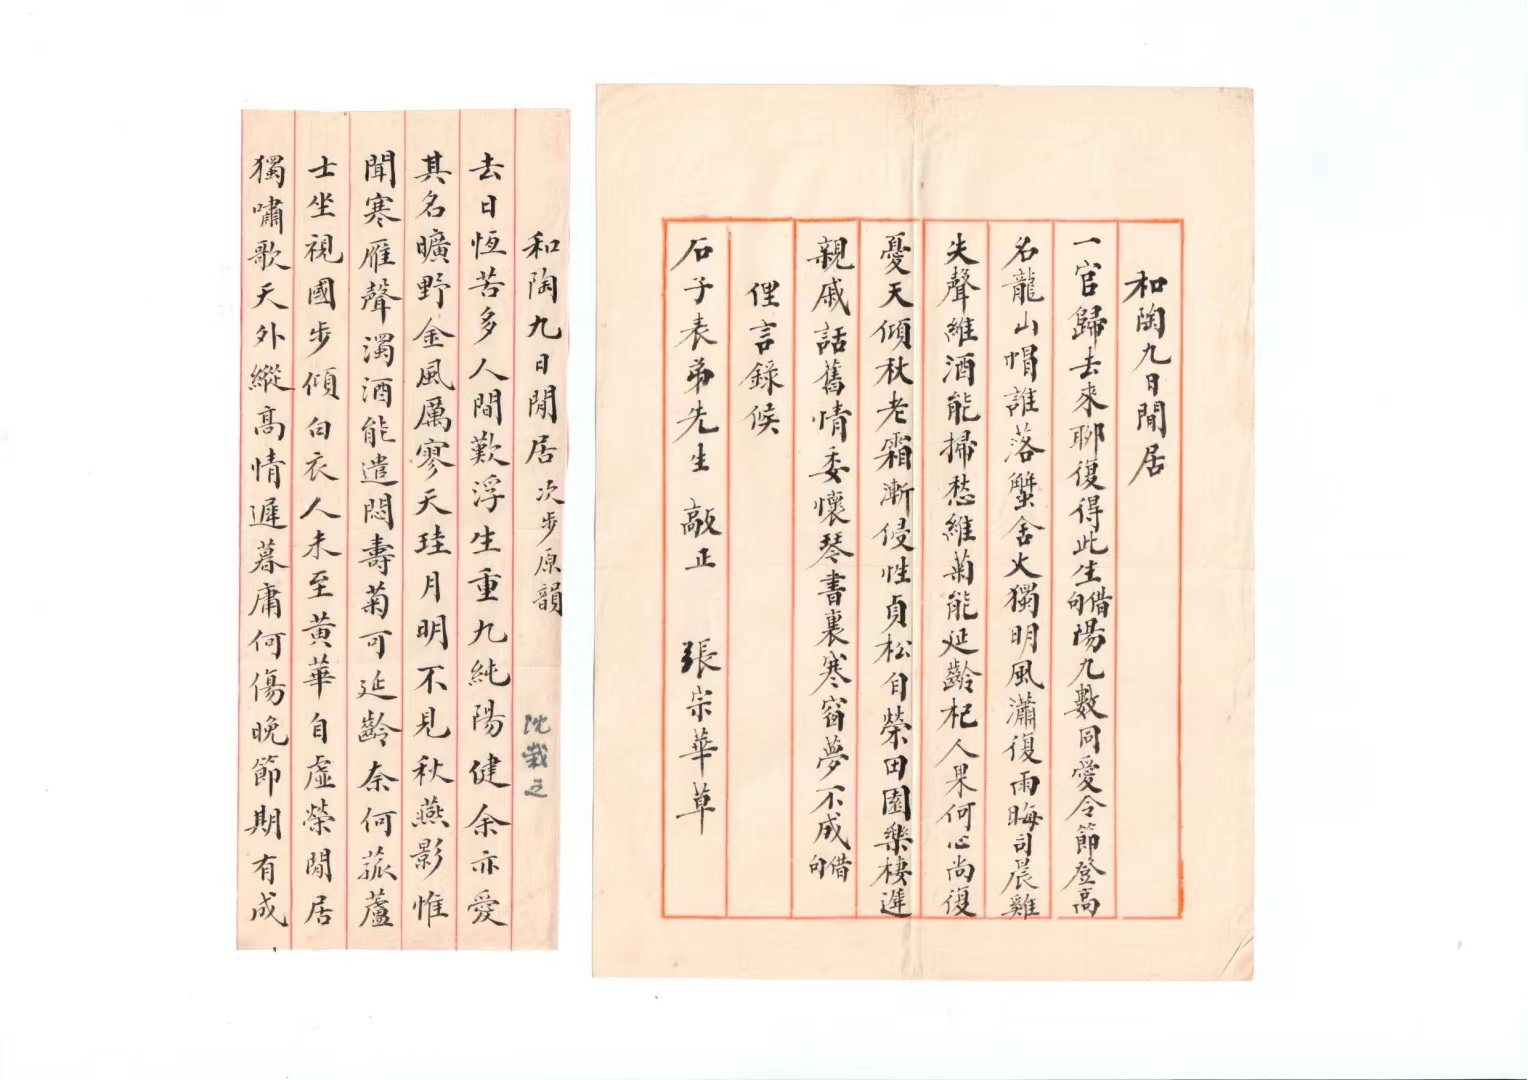 和陶九日閒居
一官歸去來聊復得此生借句陽九數同愛令節登高
名龍山帽誰落蟹舍火獨明風瀟復雨晦司晨雞
失聲維酒能掃愁維菊能延齡杞人果何心尚復
憂天傾秋老霜漸侵性貞松自榮田園樂棲遲
親戚話舊情委懷琴書裏寒窗夢不成借句
俚言錄候
石子表弟先生 敲正 張宗華草
和陶九日閒居 次步原韻 沈
去日恆苦多人間歎浮生重九純陽健余亦愛
其名曠野金風厲寥天珪月明不見秋燕影惟
聞寒雁聲濁酒能遣悶壽菊可延齡奈何菰蘆
士坐視國步傾白衣人未至黃華自虛榮閒居
獨嘯歌天外縱高情遲暮庸何傷晚節期有成